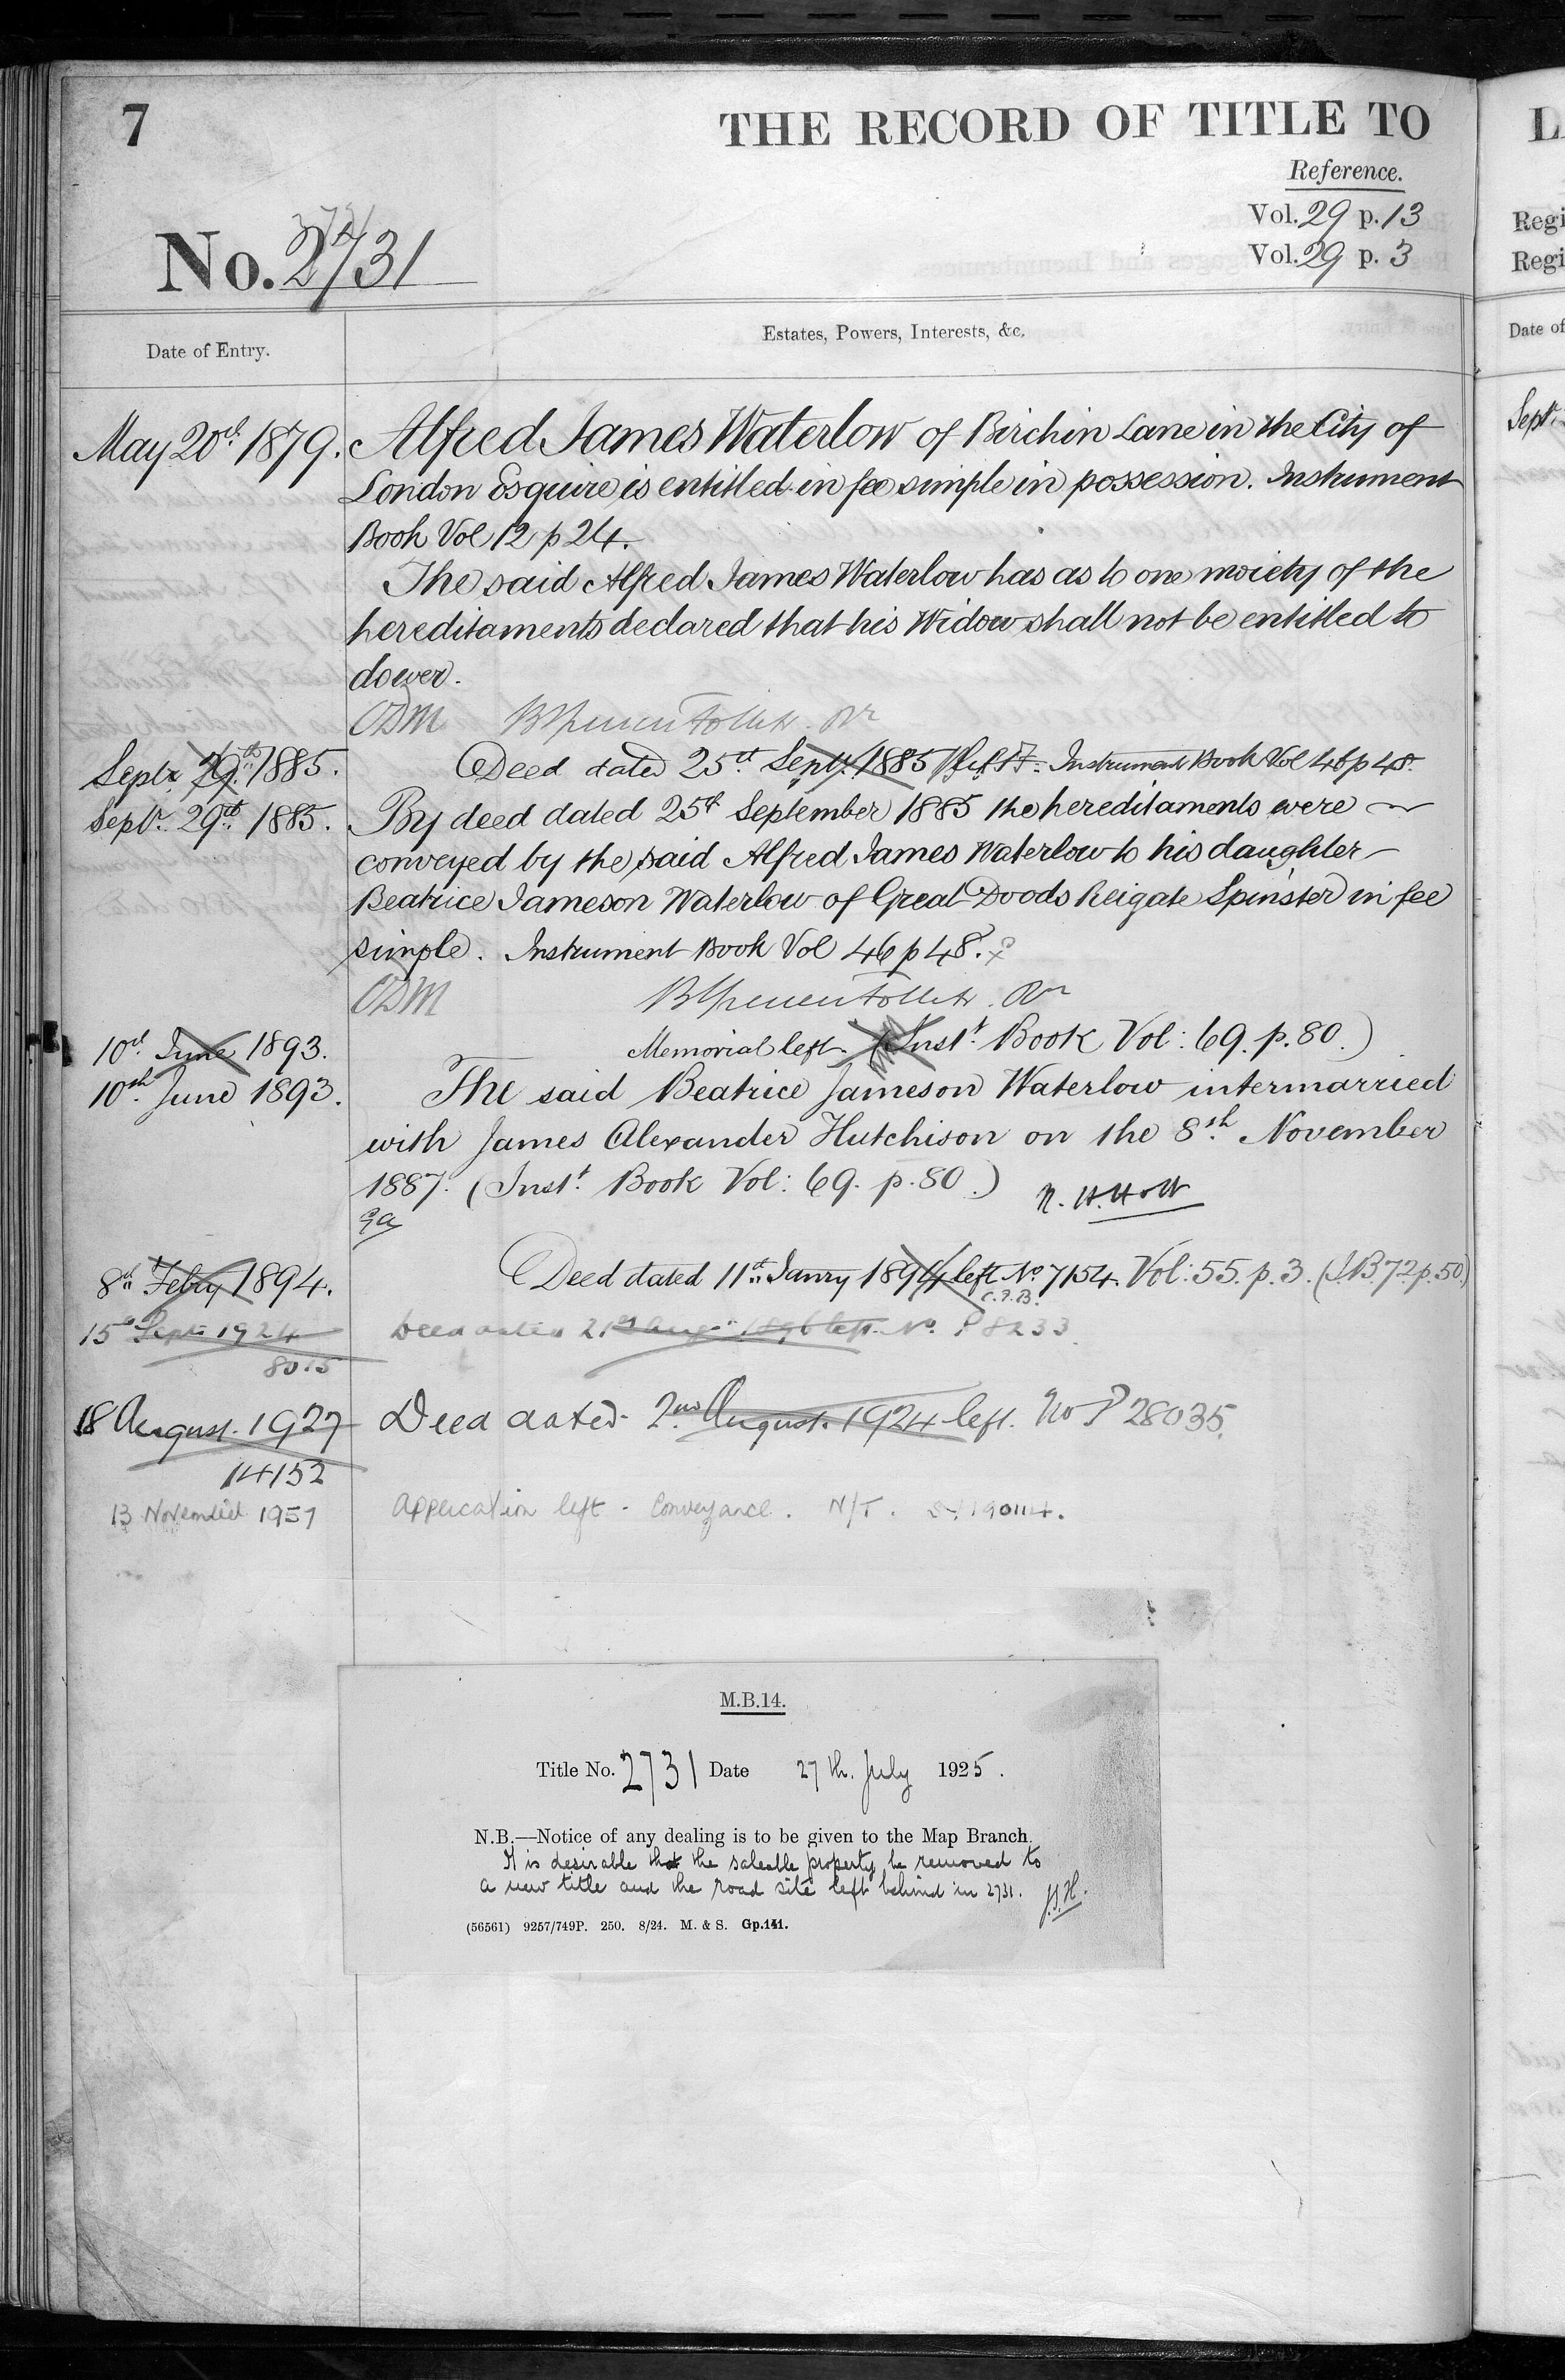 7
THE RECORD OF TITLE TO
Reference.
Vol. 29 p. 13
No. 2731
Vol. 29 p. 3
Date of Entry.
Estates, Powers, Interests, &c.
May 20th 1879. Alfred James Waterlow of Birchin Lane in the City of
London Esquire is entitled in fee simple in possession. Instrument
Book Vol 12 p 24.
The said Alfred James Waterlow has as to one moiety of the
hereditaments declared that his Widow shall not be entitled to
dower.
ODM
Septr 29th 1885. Deed dated 25th Septr. 1885 left Instrument Book Vol 46 p 48.
Septr. 29th 1885. By deed dated 25th September 1885 the hereditaments were
conveyed by the said Alfred James Waterlow to his daughter
Beatrice Jameson Waterlow of Great Doods Reigate Spinster in fee
simple. Instrument Book Vol 46 p 48.
ODM
10th June 1893. Memorial left. (Inst. Book Vol: 69. p. 80.)
10th June 1893. The said Beatrice Jameson Waterlow intermarried
with James Alexander Hutchison on the 8th November
1887. (Inst. Book Vol: 69. p. 80.)
8th Febry 1894. Deed dated 11th Janry 1894 left No. 7154. Vol: 55. p. 3. (I.B. 72 p. 50)
15 Sept 1924 Deed dated 21st Aug 1896 left No. P 8233
8015
18 August. 1927 Deed dated 2nd August. 1924 left. No P 28035.
14152
13 November 1951 Application left - Conveyance. N/T. SY190114.
M.B.14.
Title No. 2731 Date 27th. July 1925.
N.B.—Notice of any dealing is to be given to the Map Branch.
It is desirable that the saleable property be removed to
a new title and the road site left behind in 2731. J.S.H.
(56561) 9257/749P. 250. 8/24. M. & S. Gp.141.
L
Regi
Regi
Date of
Septr